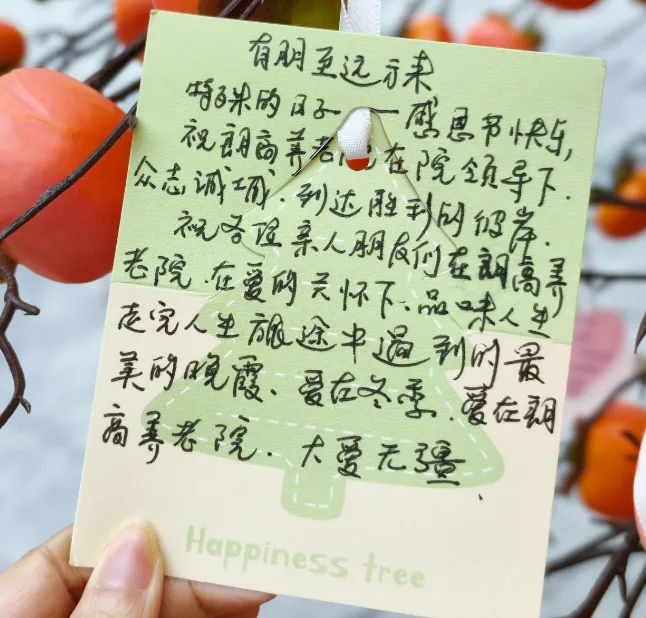 有朋至远方来
特殊的日子——感恩节快乐,
祝朗高养老院在院领导下.
众志诚城.到达胜利的彼岸.
祝各位亲人朋友们在朗高养
老院.在爱的关怀下.品味人生
走完人生旅途中遇到的最
美的晚霞.爱在冬季.爱在朗
高养老院.大爱无疆.
Happiness tree